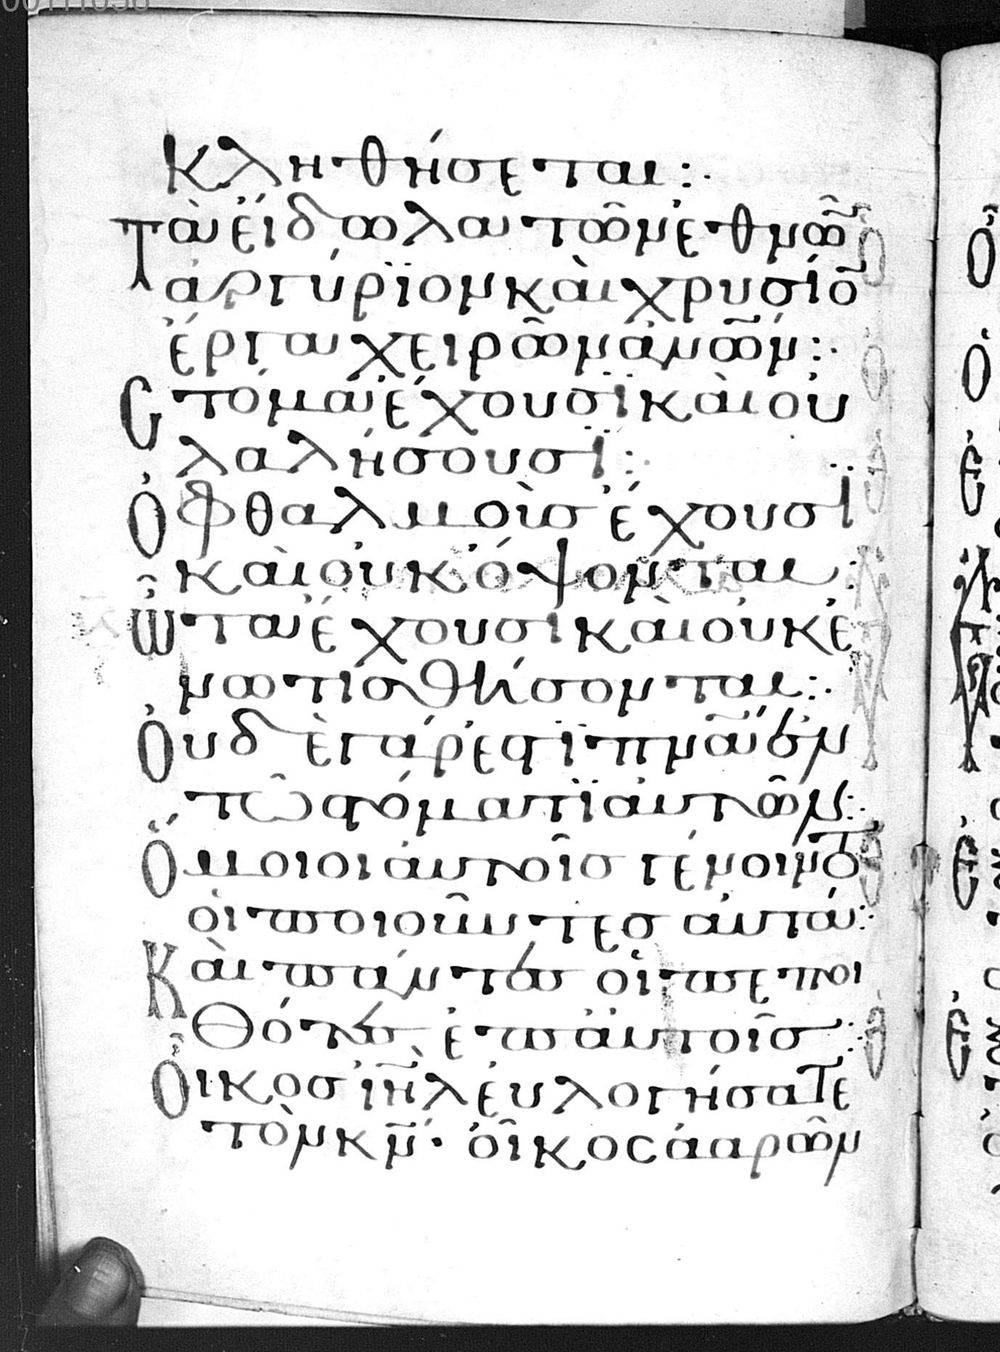 00111038
κληθήσεται:·
Τὰ εἴδωλα τῶν ἐθνῶ̅
ἀργύριον καὶ χρυσίο̅
ἔργα χειρῶν ἀνω̅ν:·
Στόμα ἔχουσι καὶ οὐ
λαλήσουσι:·
Ὀφθαλμοὺσ ἔχουσι
καὶ οὐκ ὄψονται:
Ὦτα ἔχουσι καὶ οὐκ ἐ
νωτισθήσονται:·
Οὐδὲ γάρ ἐστι πνα̅ ἐν
τῶ στόματι αὐτῶν:
Ὅμοιοι αὐτοῖσ γένοιντο
οἱ ποιοῦντεσ αὐτά:
Καὶ πάντεσ οἱ πεποι
θότεσ ἐπ αὐτοῖσ:
Οἶκοσ ιη̅λ εὐλογήσατε
τὸν κν̅· οἶκοσ ἀαρών